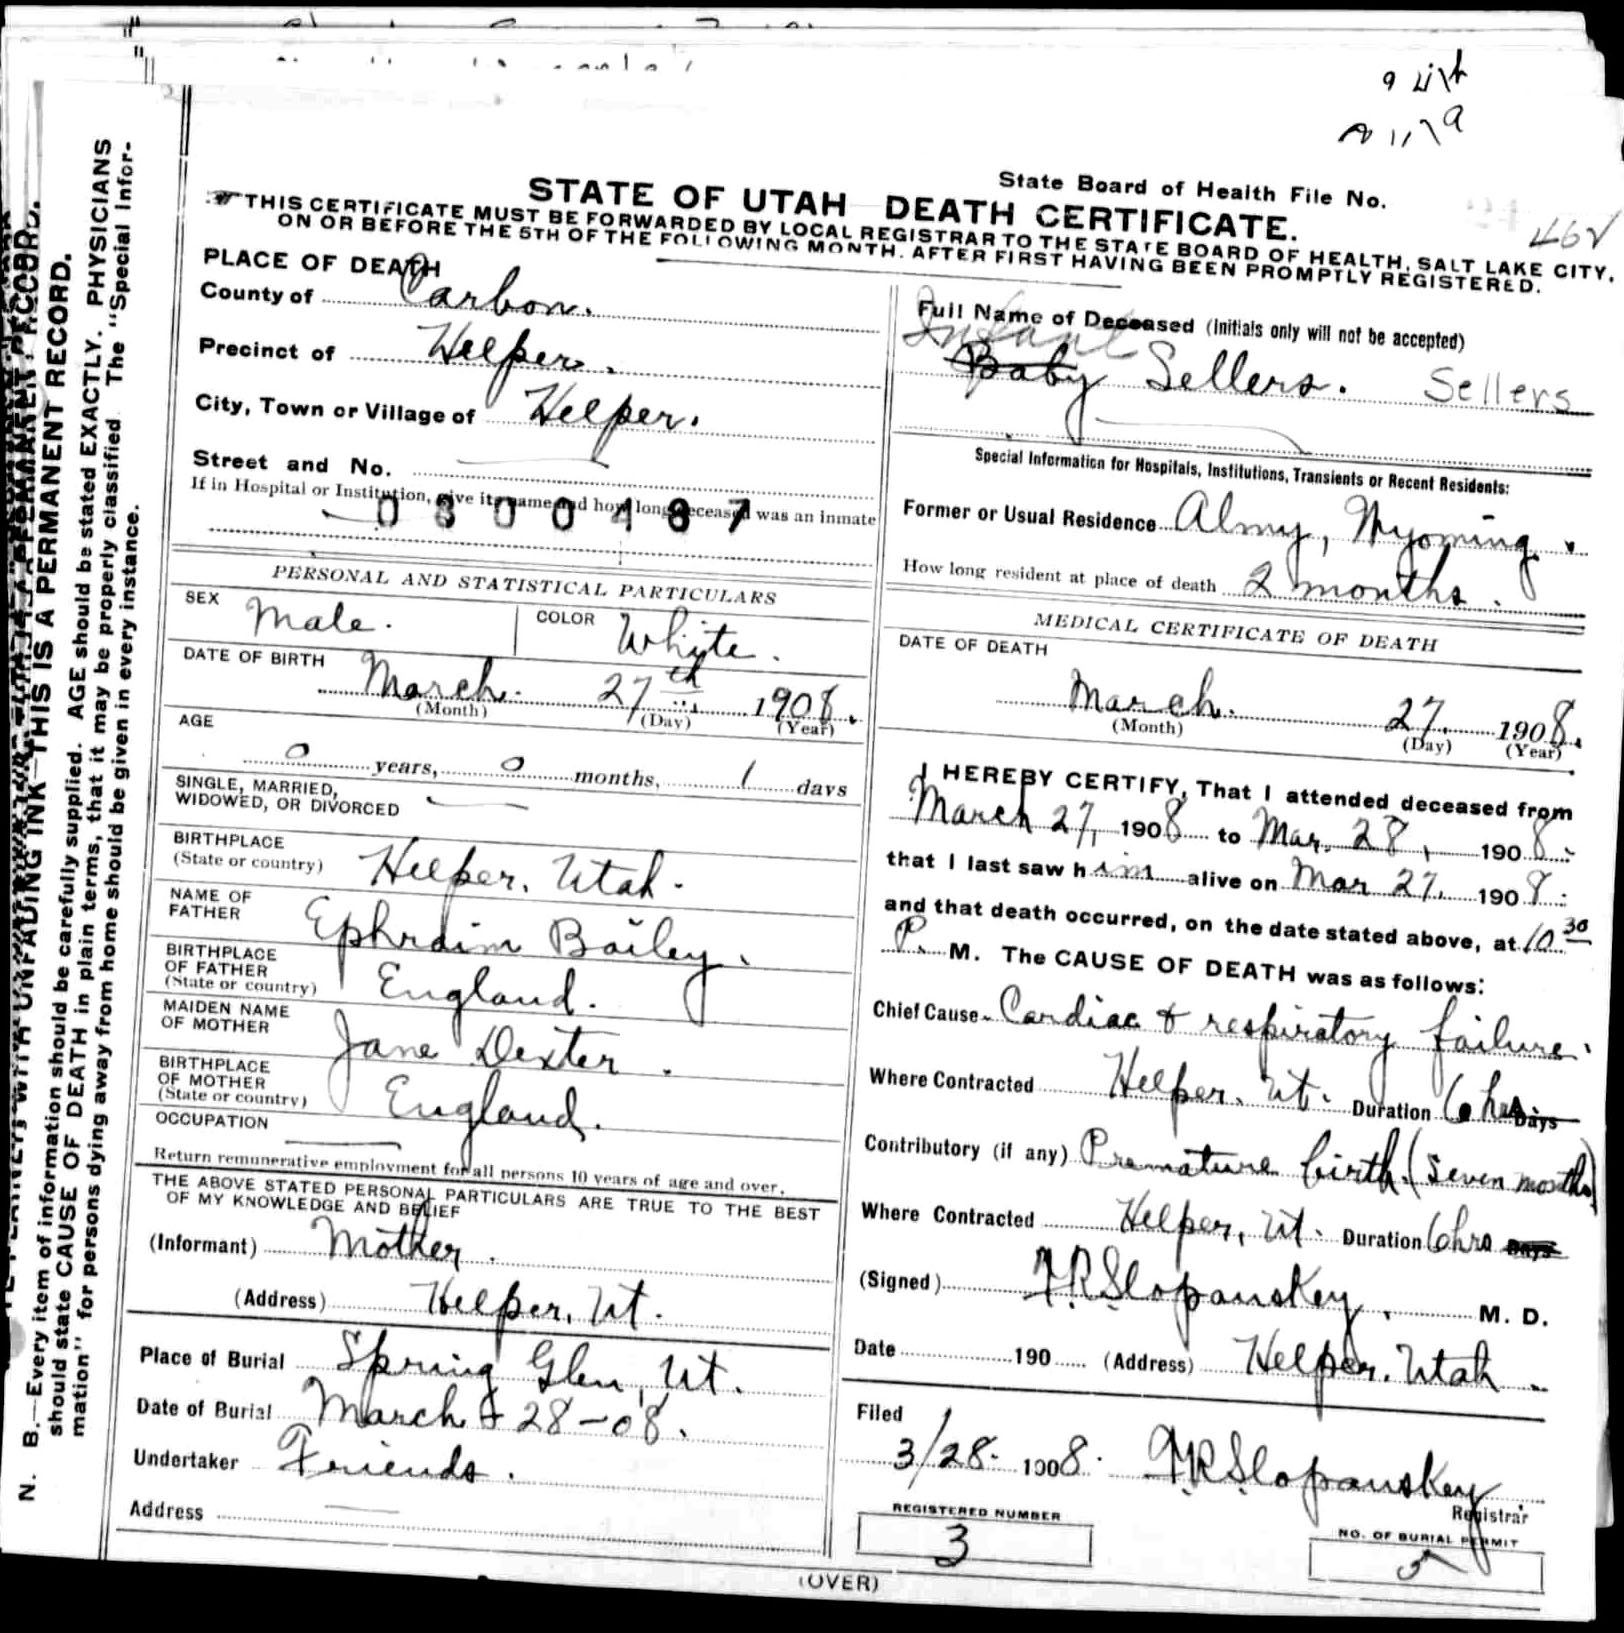 State Board of Health File No.
STATE OF UTAH DEATH CERTIFICATE.
THIS CERTIFICATE MUST BE FORWARDED BY LOCAL REGISTRAR TO THE STATE BOARD OF HEALTH, SALT LAKE CITY,
ON OR BEFORE THE 5TH OF THE FOLLOWING MONTH. AFTER FIRST HAVING BEEN PROMPTLY REGISTERED.
PLACE OF DEATH
County of Carbon.
Precinct of Helper.
City, Town or Village of Helper.
Street and No.
If in Hospital or Institution, give its name and how long deceased was an inmate
0300487
PERSONAL AND STATISTICAL PARTICULARS
SEX Male. COLOR White.
DATE OF BIRTH March. 27th 1908.
(Month) (Day) (Year)
AGE
0 years, 0 months, 1 days
SINGLE, MARRIED,
WIDOWED, OR DIVORCED
BIRTHPLACE
(State or country) Helper, Utah.
NAME OF
FATHER Ephraim Bailey.
BIRTHPLACE
OF FATHER
(State or country) England.
MAIDEN NAME
OF MOTHER Jane Dexter.
BIRTHPLACE
OF MOTHER
(State or country) England.
OCCUPATION
Return remunerative employment for all persons 10 years of age and over.
THE ABOVE STATED PERSONAL PARTICULARS ARE TRUE TO THE BEST
OF MY KNOWLEDGE AND BELIEF
(Informant) Mother.
(Address) Helper, Ut.
Place of Burial Spring Glen, Ut.
Date of Burial March 28-08.
Undertaker Friends.
Address
Full Name of Deceased (Initials only will not be accepted)
Infant
Baby Sellers. Sellers
Special Information for Hospitals, Institutions, Transients or Recent Residents:
Former or Usual Residence Almy, Wyoming.
How long resident at place of death 2 months.
MEDICAL CERTIFICATE OF DEATH
DATE OF DEATH
March. 27. 1908.
(Month) (Day) (Year)
I HEREBY CERTIFY, That I attended deceased from
March 27, 1908 to Mar. 28, 1908.
that I last saw him alive on Mar 27, 1908.
and that death occurred, on the date stated above, at 10 30
P. M. The CAUSE OF DEATH was as follows:
Chief Cause Cardiac & respiratory failure.
Where Contracted Helper. Ut. Duration 6 hrs Days
Contributory (if any) Premature birth. (Seven months)
Where Contracted Helper, Ut. Duration 6 hrs Days
(Signed) F.R. Slopanskey. M. D.
Date 190 (Address) Helper, Utah
Filed
3/28. 1908. F.R. Slopanskey
Registrar
REGISTERED NUMBER
3
NO. OF BURIAL PERMIT
3
(OVER)
N. B.—Every item of information should be carefully supplied. AGE should be stated EXACTLY. PHYSICIANS
should state CAUSE OF DEATH in plain terms, that it may be properly classified. The "Special Infor-
mation" for persons dying away from home should be given in every instance.